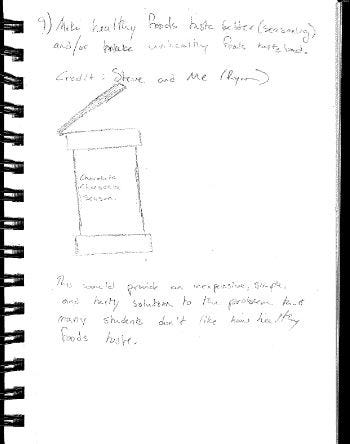 9) Make healthy foods taste better (seasoning)
and/or make unhealthy foods taste bad.
Credit: Steve and Me (Ryan)
Chocolate
Cheesecake
Season.
This would provide an inexpensive, simple,
and tasty solution to the problem that
many students don't like how healthy
foods taste.